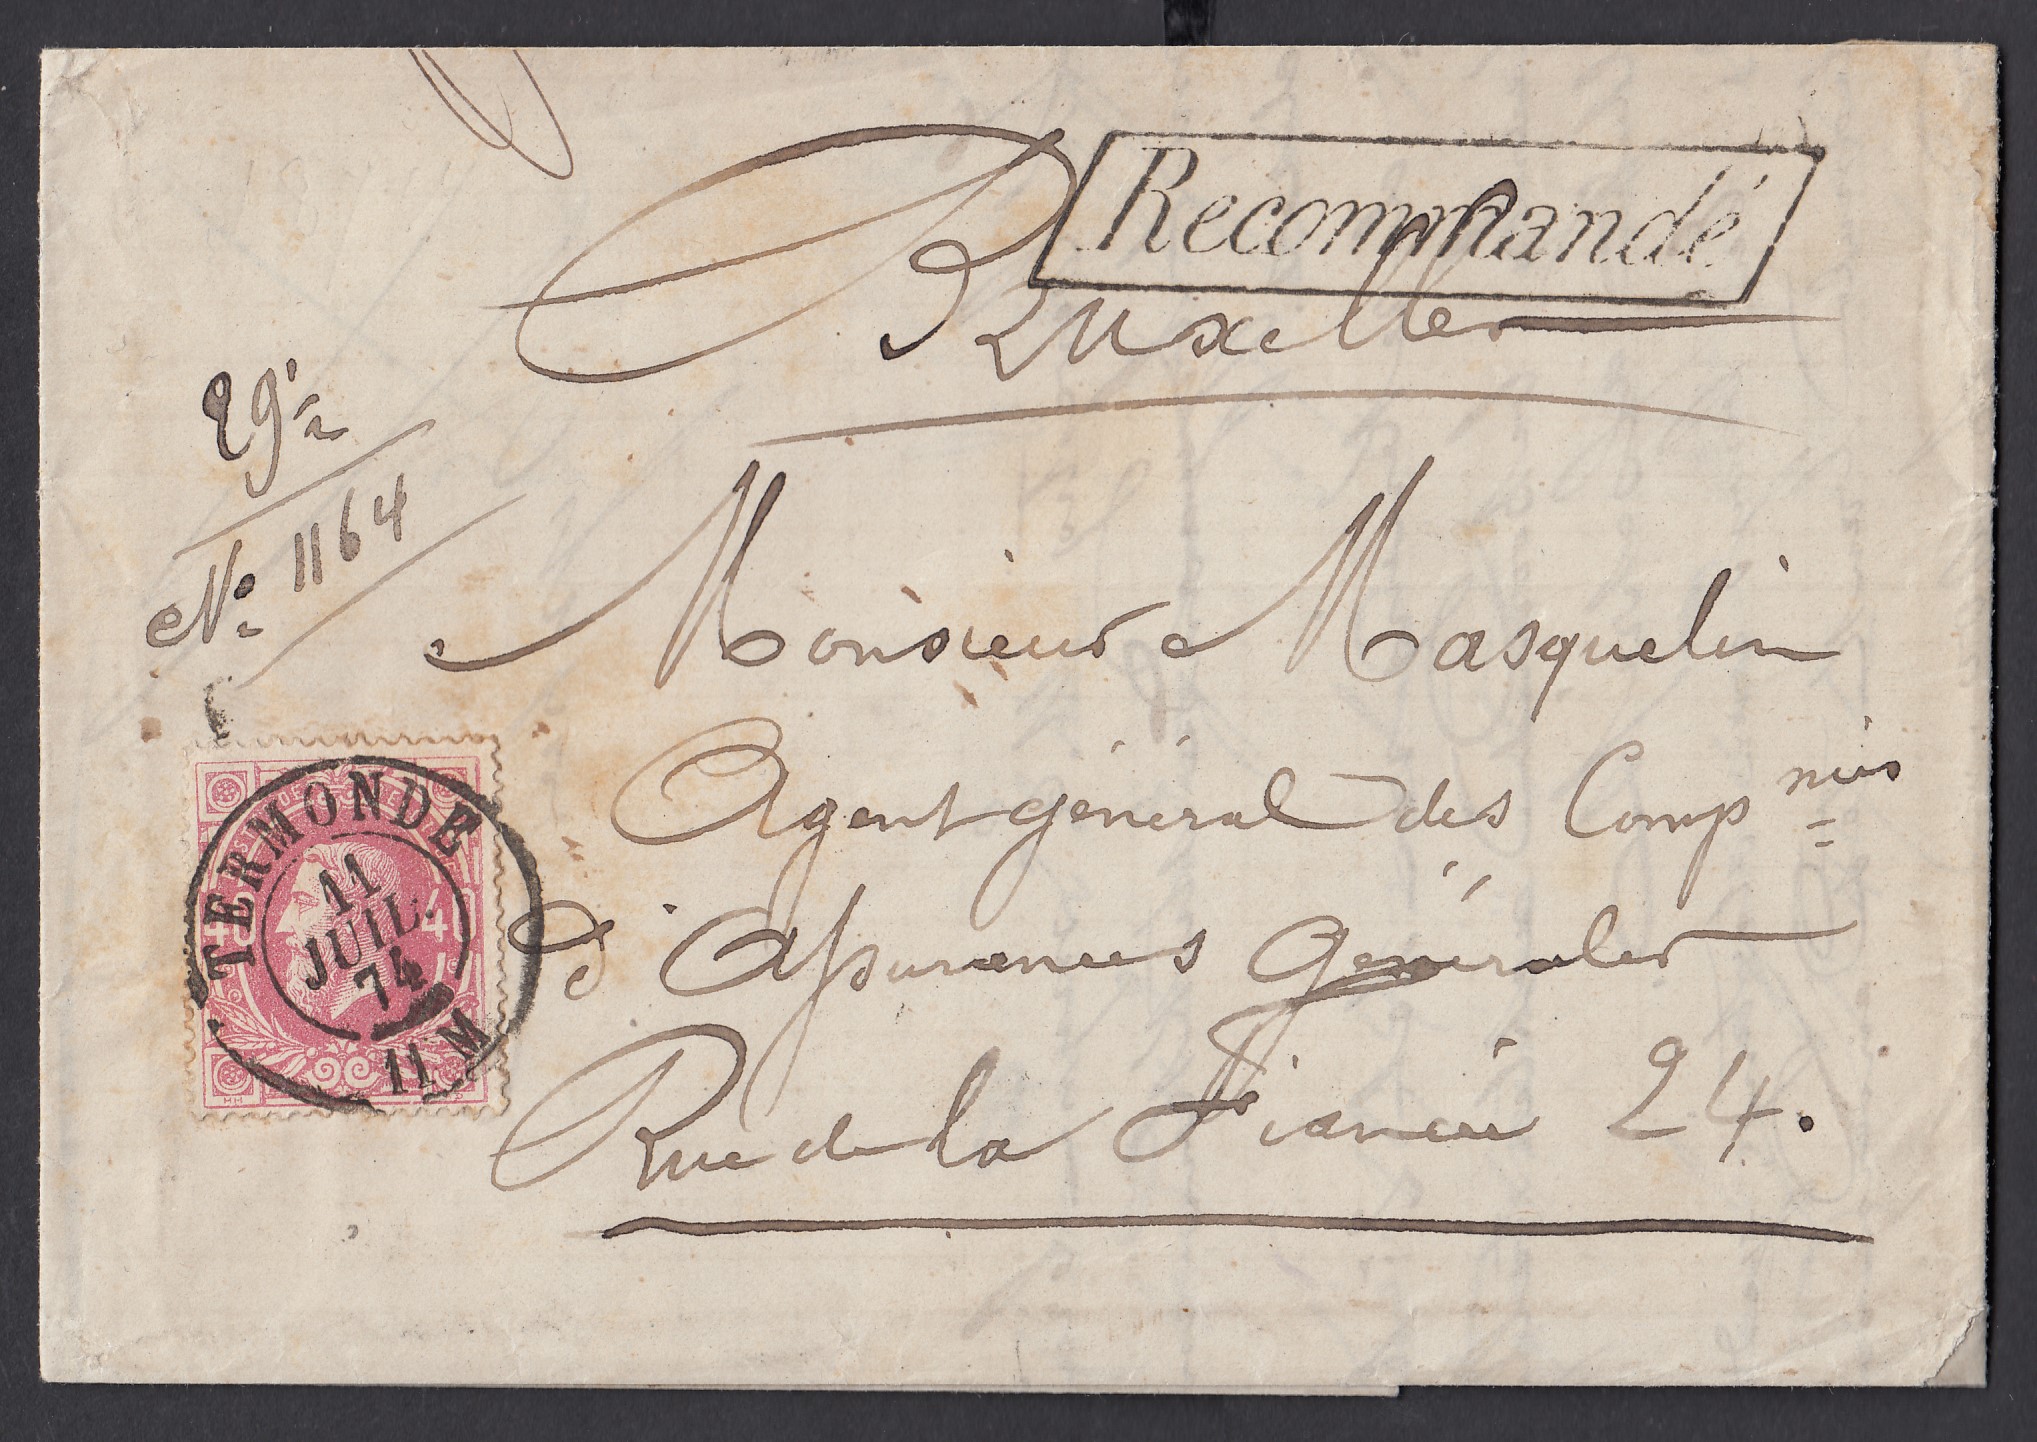 Recommandé
Bruxelles
No 1164
Monsieur Masquelin
Agent général des Compnies
d'Assurances Générales
Rue de la Fiancée 24.
TERMONDE
11
JUIL.
74
11 M